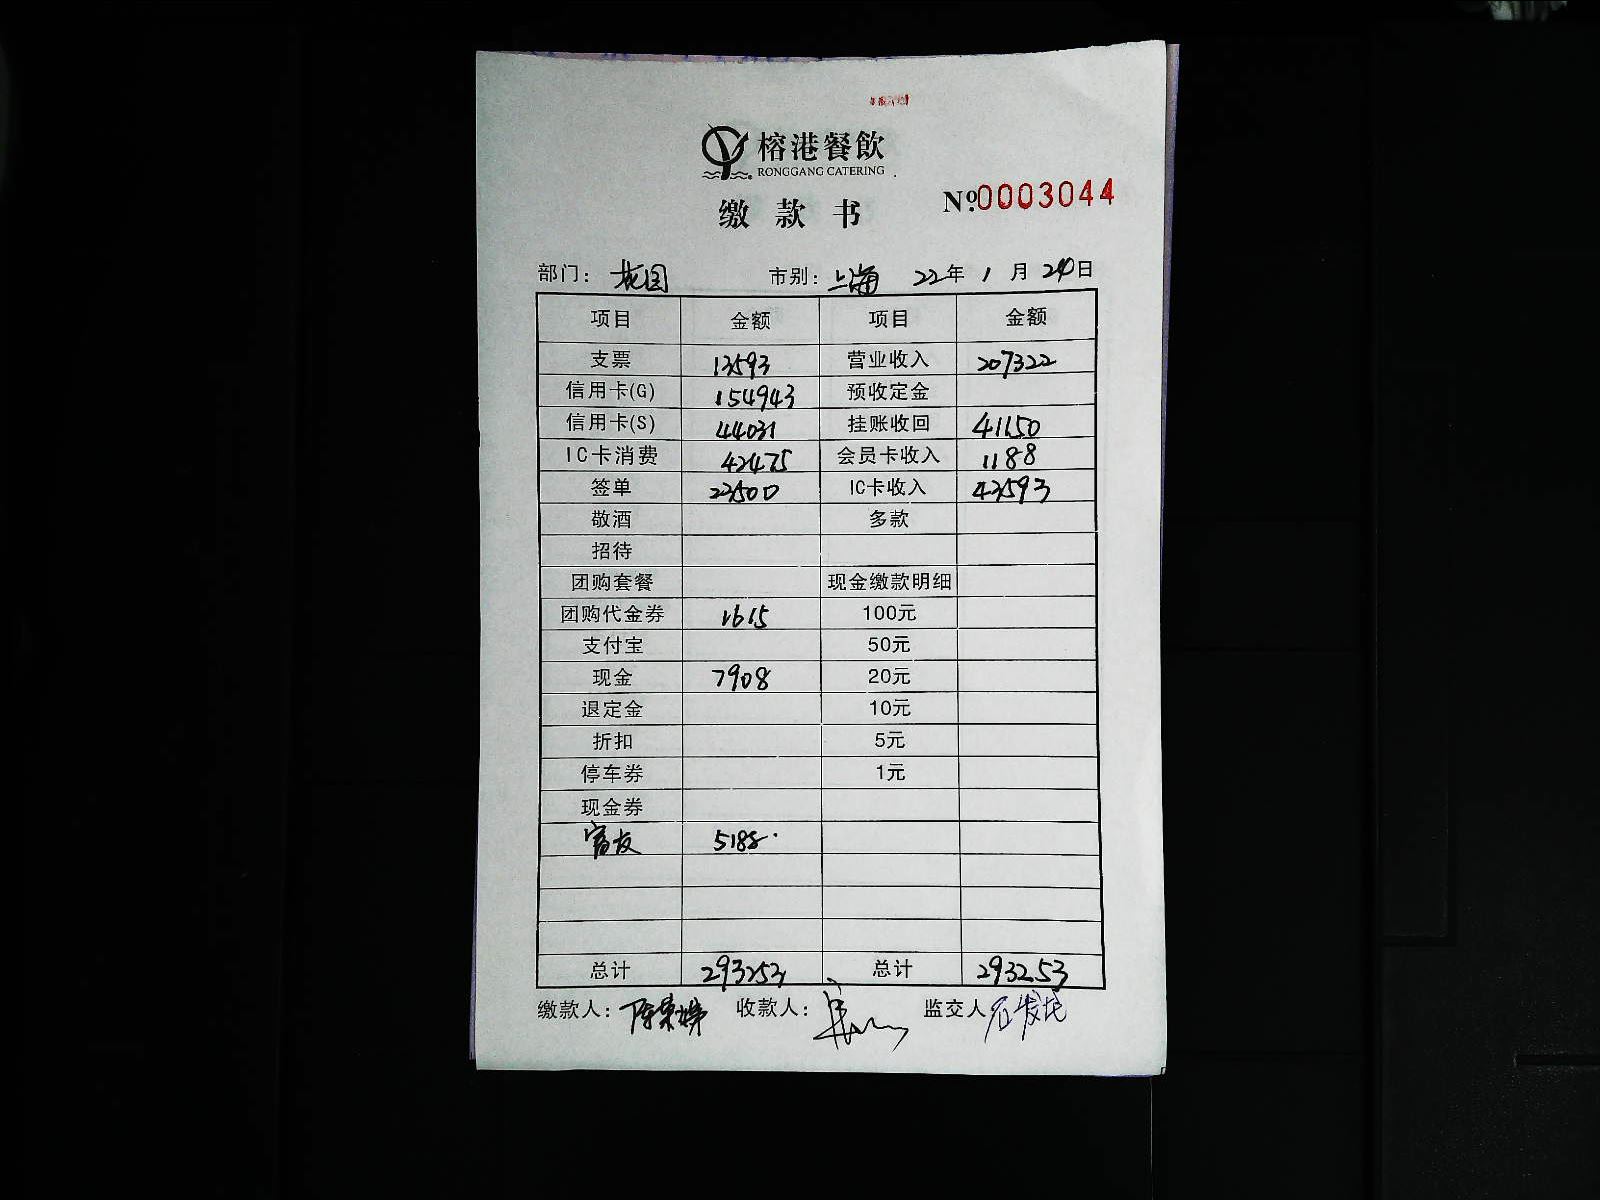 榕港餐飲
RONGGANG CATERING
缴款书
№0003044
部门：花园 市别：上海 22年1月24日
项目 金额 项目 金额
支票 13593 营业收入 207322
信用卡(G) 154943 预收定金
信用卡(S) 44031 挂账收回 41150
IC卡消费 42475 会员卡收入 1188
签单 23500 IC卡收入 43593
敬酒 多款
招待
团购套餐 现金缴款明细
团购代金券 1615 100元
支付宝 50元
现金 7908 20元
退定金 10元
折扣 5元
停车券 1元
现金券
富友 5188
总计 293253 总计 293253
缴款人： 收款人： 监交人